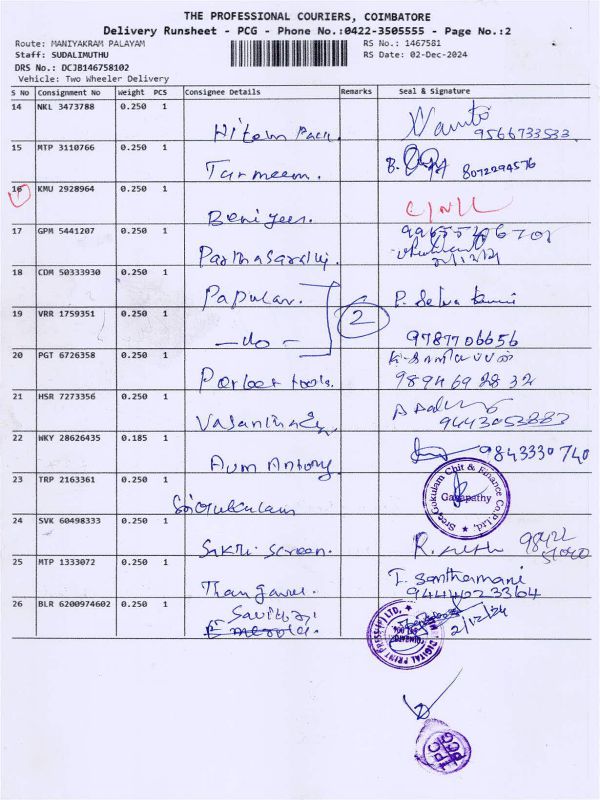 THE PROFESSIONAL COURIERS, COIMBATORE
Delivery Runsheet - PCG - Phone No.:0422-3505555 - Page No.:2
Route: MANIYAKRAM PALAYAM
RS No.: 1467581
Staff: SUDALIMUTHU
RS Date: 02-Dec-2024
DRS No.: DCJB146758102
Vehicle: Two Wheeler Delivery
S No Consignment No Weight PCS Consignee Details Remarks Seal & Signature
14 NKL 3473788 0.250 1
Hitech Pack. 9566733533
15 MTP 3110766 0.250 1
Tarmeem. 8072294576
16 KMU 2928964 0.250 1
17 GPM 5441207 0.250 1
Parthasarathy.
18 CDM 50333930 0.250 1
Papular.
2
19 VRR 1759351 0.250 1
-do- 9787706656
20 PGT 6726358 0.250 1
Perfect tools. 98946 92832
21 HSR 7273356 0.250 1
9443053883
22 WKY 28626435 0.185 1
Arum Antony. 9843330740
23 TRP 2163361 0.250 1
Sri Gokulam
Sree Gokulam Chit & Finance Co.P.Ltd., Ganapathy
24 SVK 60498333 0.250 1
Sakthi Screen.
25 MTP 1333072 0.250 1
T. Santhamani
9444023364
26 BLR 6200974602 0.250 1
DIGITAL PRINT PRESS (P) LTD,
2/12/24
TPC
PCG